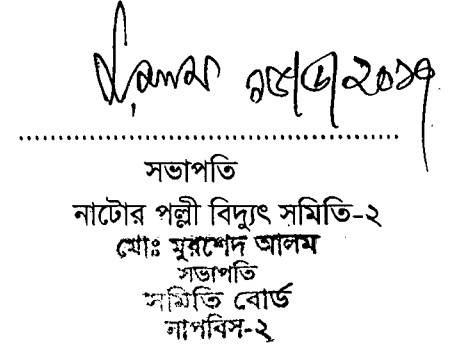 ২০১৭
সভাপতি
নাটোর পল্লী বিদ্যুৎ সমিতি-২
মোঃ মুরশেদ আলম
সভাপতি
সমিতি বোর্ড
নাপবিস-২